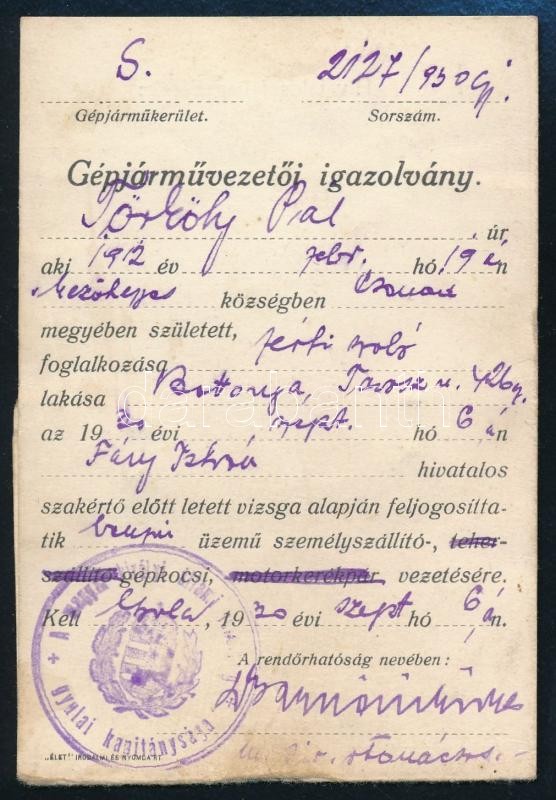 S. 2127/930
Gépjárműkerület. Sorszám.
Gépjárművezetői igazolvány.
Törköly Pal úr
aki 1912 év febr. hó 19 én
Mezőhegyes községben Csanád
megyében született,
foglalkozása férfi szabó
lakása Battonya, u.
az 1930 évi szept. hó 6 án
Fáry István hivatalos
szakértő előtt letett vizsga alapján feljogosítta-
tik benzin üzemű személyszállító-, teher-
szállító-gépkocsi, motorkerékpár vezetésére.
Kelt Gyula, 1930 évi szept hó 6 án.
A rendőrhatóság nevében:
gyulai kapitánysága
„ÉLET" IRODALMI ÉS NYOMDA RT.
darabanth